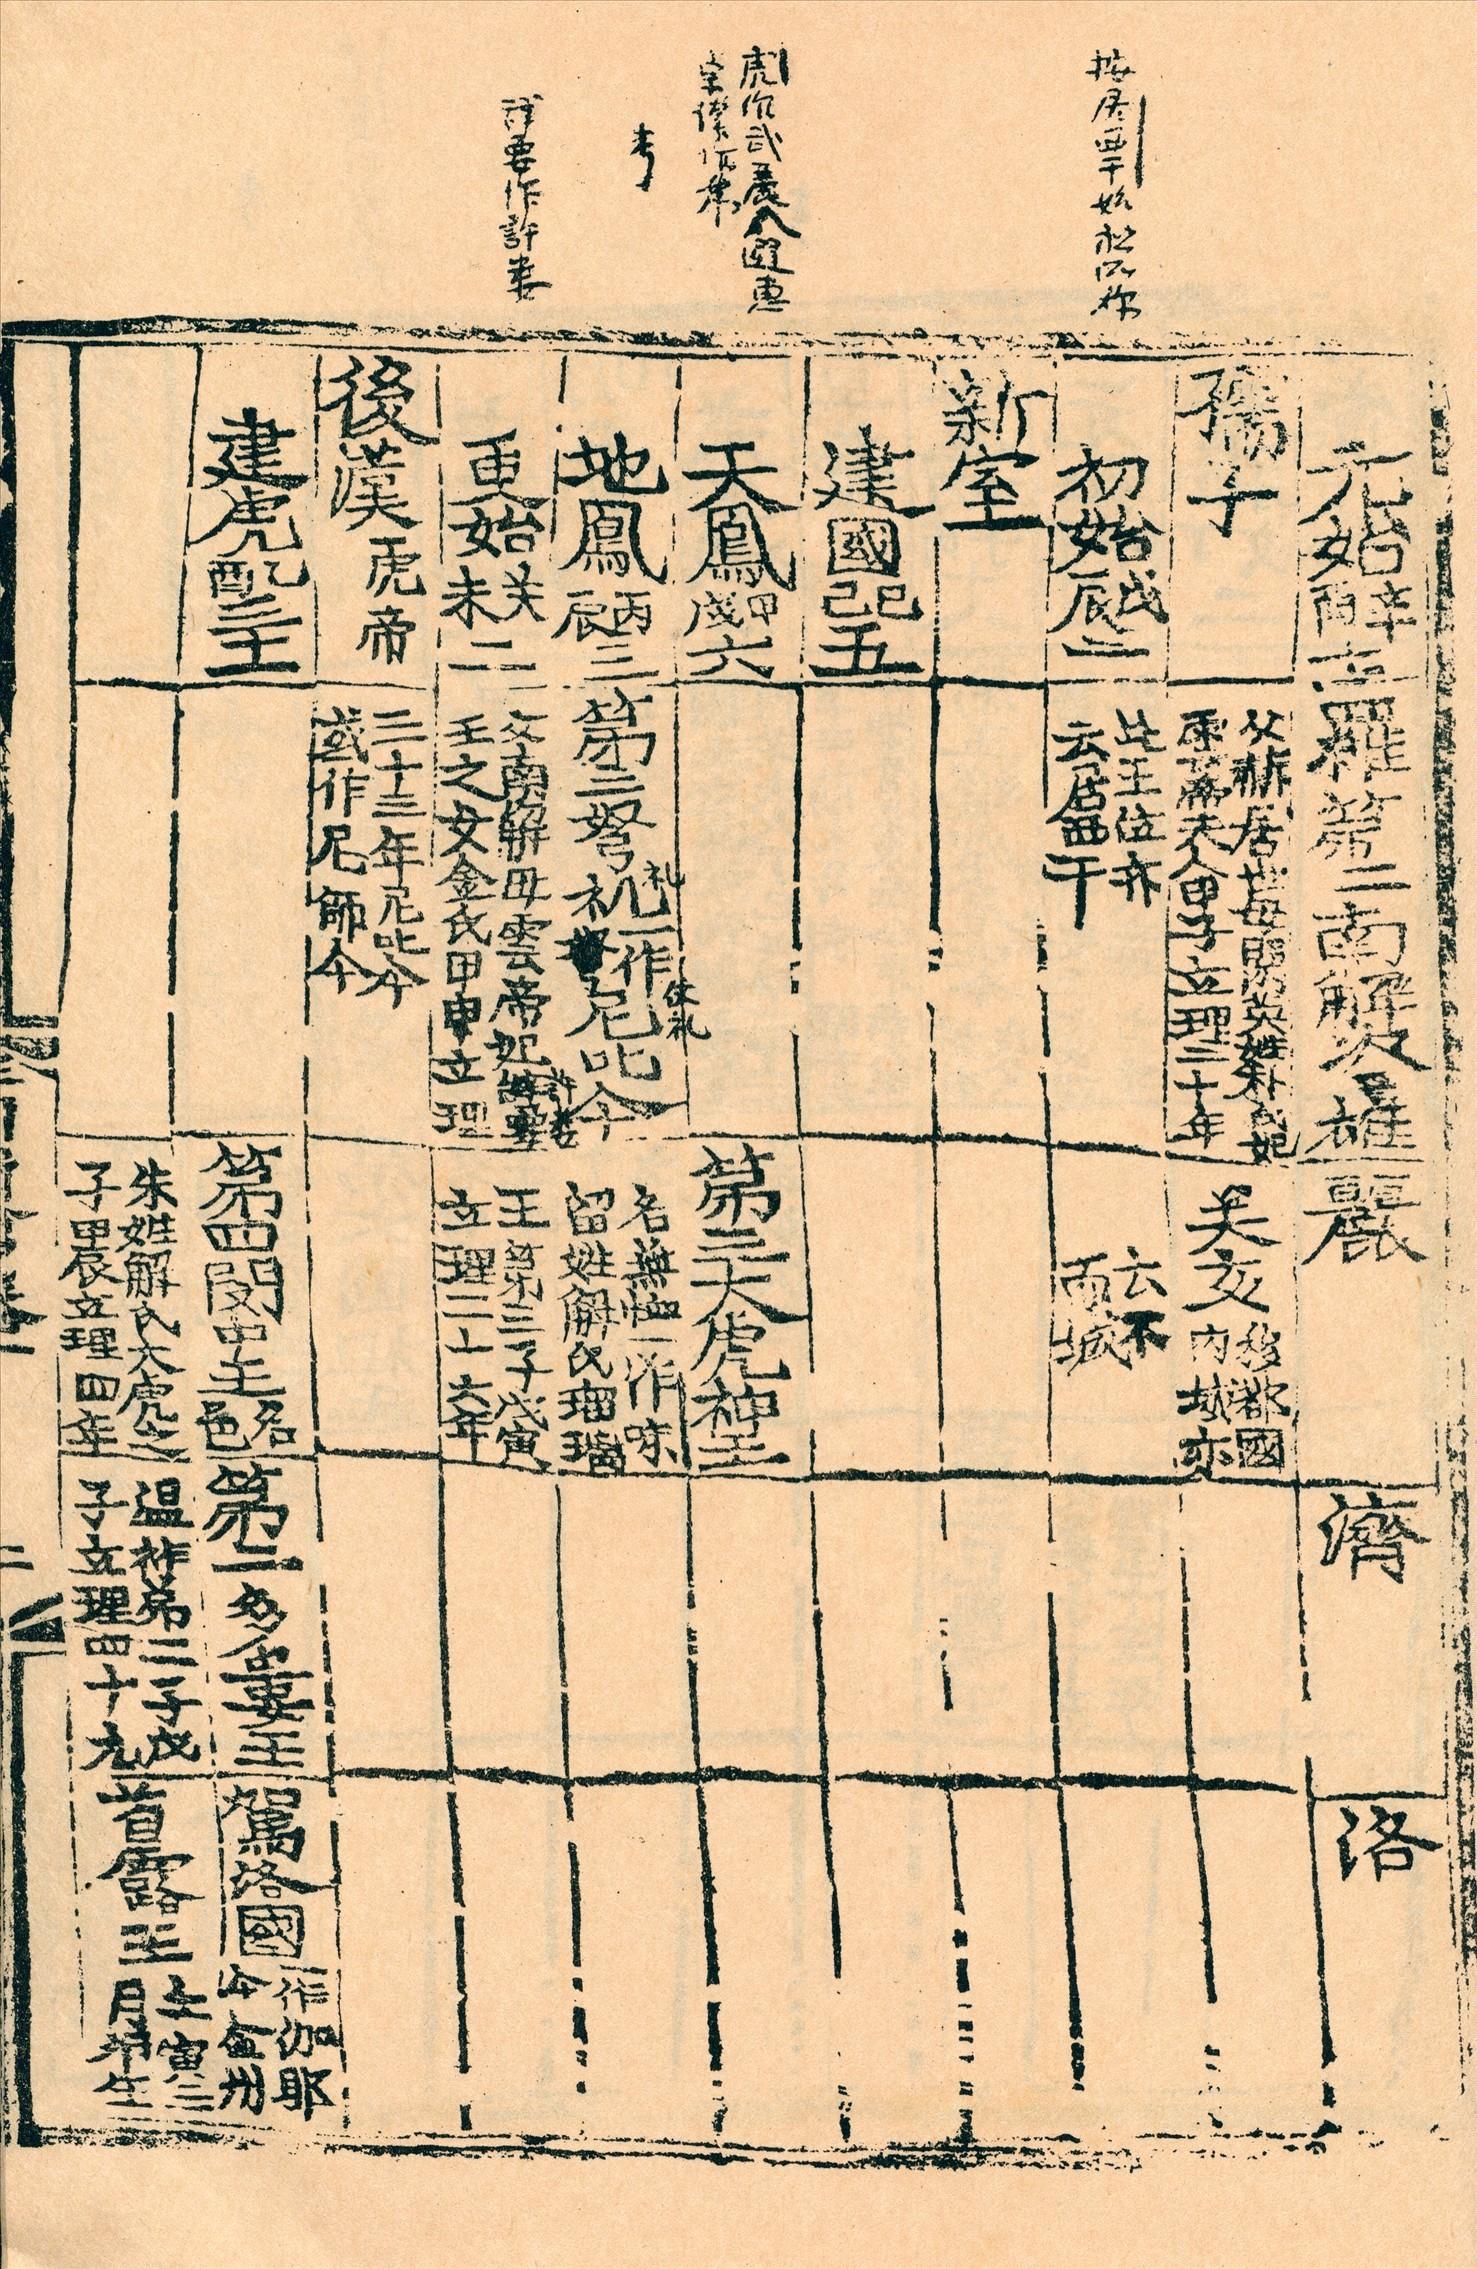 按居西干始祖所称
考
作許婁
元始辛酉 羅 第二南解次雄 麗 濟 洛
孺子
父赫居世母閼英姓朴氏妃
雲帝夫人甲子立理二十年
癸亥移都國
內城亦
云不
而城
初始戊辰二
此王位亦
云居西干
新室
建國己巳五
天鳳甲戌六
第三大虎神王
地鳳丙辰三
第三弩礼一作尼叱今
名無恤一作味
留姓解氏瑠璃
王第三子戊寅
立理二十六年
更始癸未二
父南解母雲帝妃辞要
王之女金氏甲申立理
三十三年尼叱今
或作尼師今
後漢虎帝
建虎乙酉三十一
第四閔中王名邑
朱姓解氏大虎之
子甲辰立理四年
第二多婁王
温祚第二子戊
子立理四十九
駕洛國一作伽耶
今金州
首露王壬寅三
月卵生